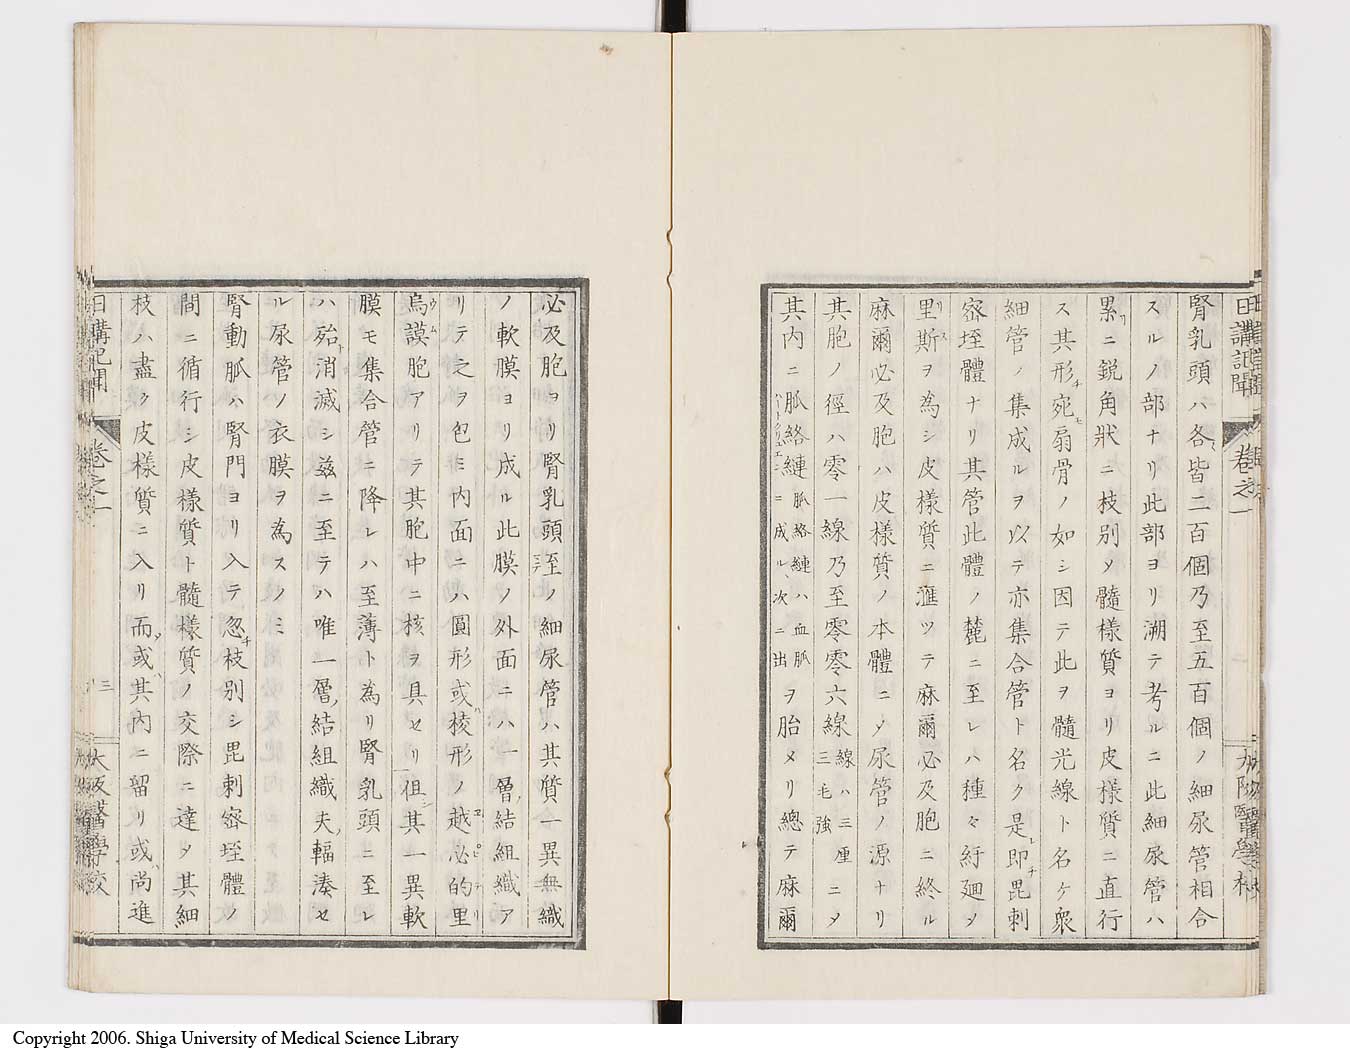 腎乳頭ハ各皆二百個乃至五百個ノ細尿管相合
スルノ部ナリ此部ヨリ溯テ考ルニ此細尿管ハ
累リニ鋭角狀ニ枝別〆髓様質ヨリ皮様質ニ直行
ス其形チ宛モ扇骨ノ如シ因テ此ヲ髓光線ト名ケ衆
細管ノ集成ルヲ以テ亦集合管ト名ク是レ即チ毘剌
密垤體ナリ其管此體ノ麓ニ至レハ種々紆廻〆
里斯ヲ為シ皮様質ニ滙ツテ麻爾必及胞ニ終ル
麻爾必及胞ハ皮様質ノ本體ニ〆尿管ノ源ナリ
其胞ノ徑ハ零一線乃至零零六線線ハ三厘三毛強ニ〆
其内ニ脈絡縺脈絡縺ハ血脈ニ成ル、次ニ出ヲ胎メリ總テ麻爾
必及胞ヨリ腎乳頭ニ至ノ細尿管ハ其質一異無織
ノ軟膜ヨリ成ル此膜ノ外面ニハ一層ノ結組織ア
リテ之ヲ包ミ内面ニハ圓形或ハ棱形ノ越必的里
烏謨胞アリテ其胞中ニ核ヲ具セリ徂シ其一異軟
膜モ集合管ニ降レハ至薄ト為リ腎乳頭ニ至レ
ハ殆ト消滅シ兹ニ至テハ唯一層ノ結組織夫ノ輻湊セ
ル尿管ノ衣膜ヲ為スノミ
腎動脈ハ腎門ヨリ入テ忽チ枝別シ毘剌密垤體ノ
間ニ循行シ皮様質ト髓様質ノ交際ニ達〆其細
枝ハ盡ク皮様質ニ入リ而〆或ハ其内ニ留リ或ハ尚進
日講記聞 卷之一 三 八 大阪醫學校